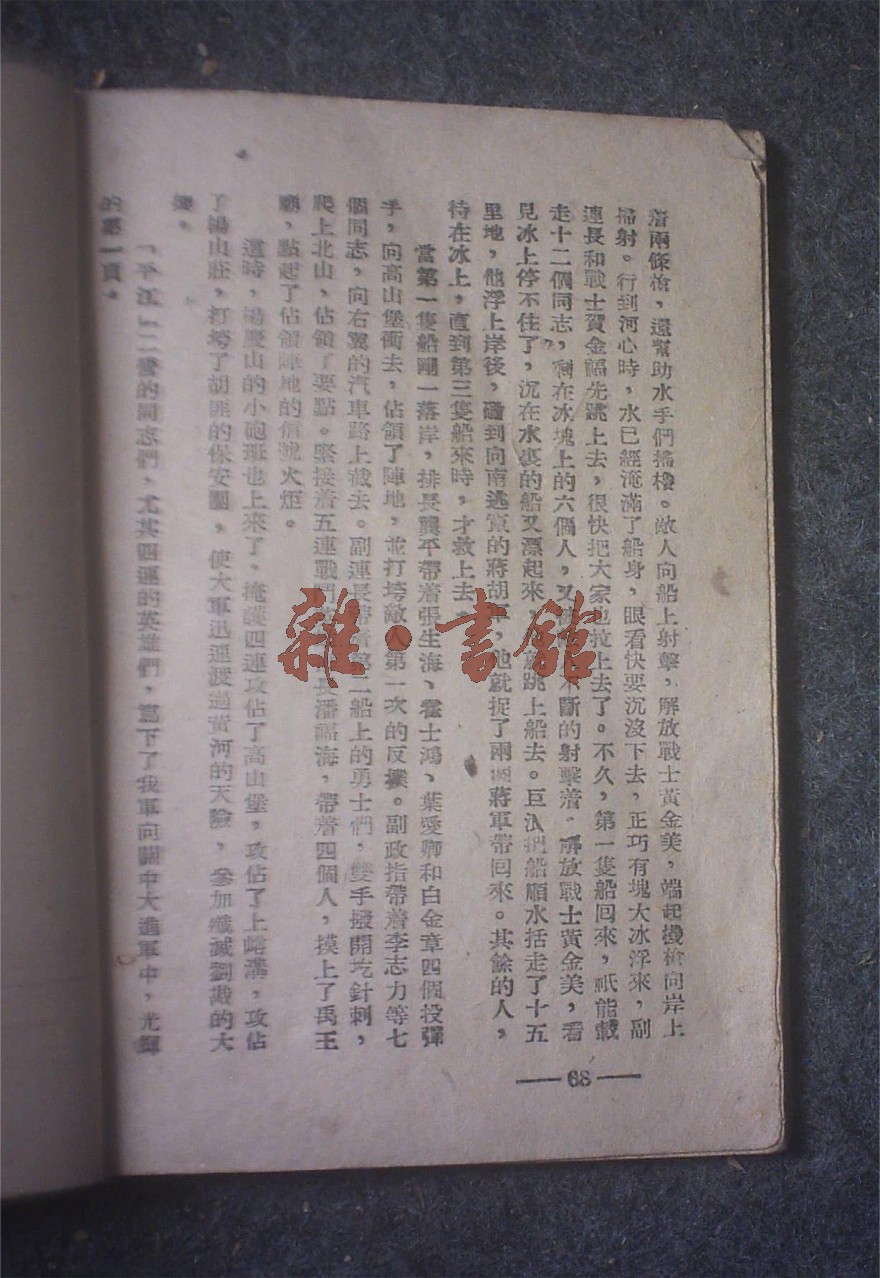 着兩條槍，還幫助水手們搖櫓。敵人向船上射擊，解放戰士黃金美，端起機槍向岸上
掃射。行到河心時，水已經淹滿了船身，眼看快要沉沒下去，正巧有塊大冰浮來，副
連長和戰士賀金福先跳上去，很快把大家也拉上去了。不久，第一隻船回來，祇能載
走十二個同志，剩在冰塊上的六個人，又被不斷的射擊着，解放戰士黃金美，看
見冰上停不住了，沉在水裏的船又漂起來，跳上船去。巨把船順水括走了十五
里地，他浮上岸後，碰到向南逃竄的蔣胡軍，他就捉了兩個蔣軍帶回來。其餘的人，
待在冰上，直到第三隻船來時，才救上去。
當第一隻船剛一落岸，排長龔平帶着張生海、霍士鴻、葉愛卿和白金章四個投彈
手，向高山堡衝去，佔領了陣地，並打垮敵人第一次的反撲。副政指帶着李志力等七
個同志，向右翼的汽車路上截去。副連長帶着第二船上的勇士們，雙手撥開圪針刺，
爬上北山，佔領了要點。緊接着五連戰鬥長潘福海，帶着四個人，摸上了禹王
廟，點起了佔領陣地的信號火炬。
這時，楊慶山的小砲班也上來了、掩護四連攻佔了高山堡，攻佔了上峪溝，攻佔
了楊山莊，打垮了胡匪的保安團，使大軍迅速渡過黃河的天險，參加殲滅劉戡的大
捷。
「平江」二營的同志們，尤其四連的英雄們，寫下了我軍向關中大進軍中，光輝
的第一頁。
—68—
雜·書館